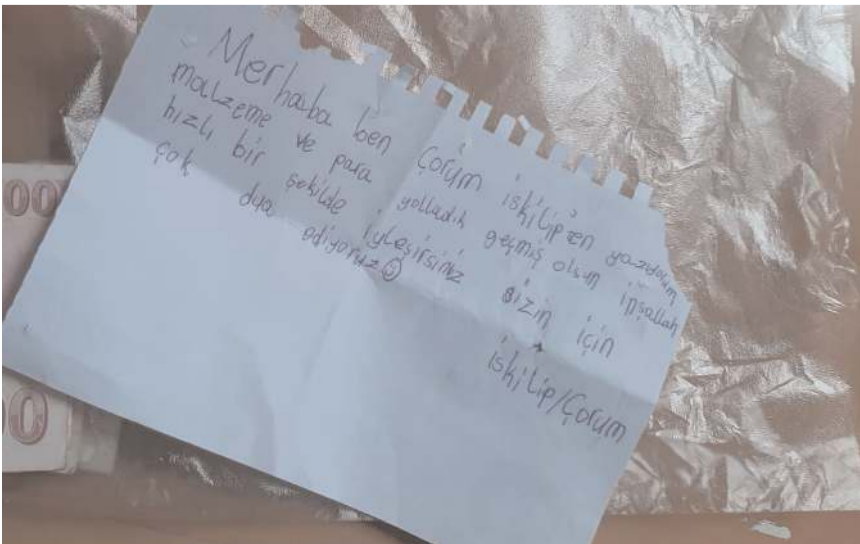 Merhaba ben Çorum iskilipten yazıyorum
malzeme ve para yolladık geçmiş olsun inşallah
hızlı bir şekilde iyleşirsiniz sizin için
çok dua ediyoruz☺
iskilip/Çorum
00
00